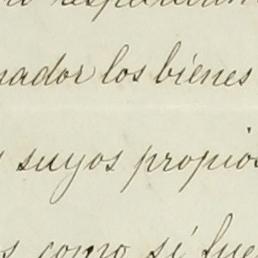 nador los bienes
suyos propios
como si fue